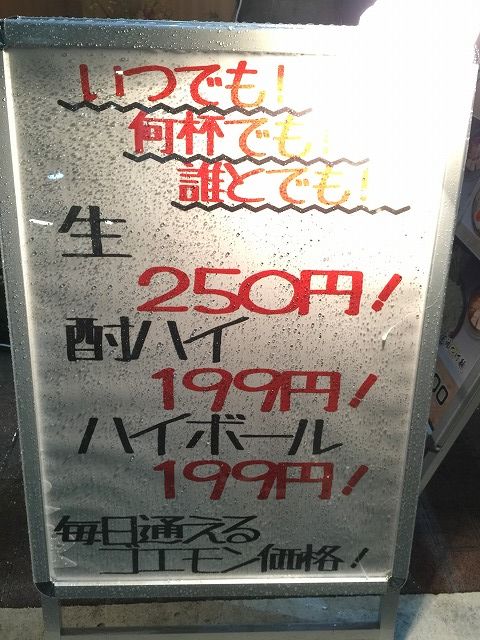 いつでも!
何杯でも!
誰とでも!
生
250円!
酎ハイ
199円!
ハイボール
199円!
毎日通える
ゴエモン価格!